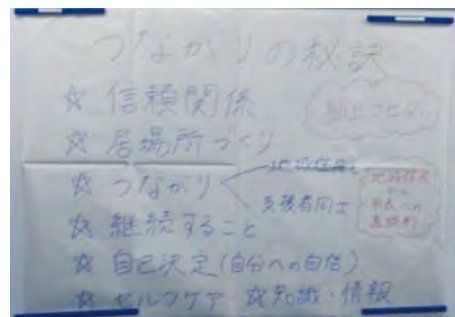 つながりの秘訣
☆ 信頼関係
孤立させない
☆ 居場所づくり
☆ つながり
地域住民と
支援者同士
☆ 継続すること
☆ 自己決定(自分への自信)
☆ セルフケア ☆知識・情報